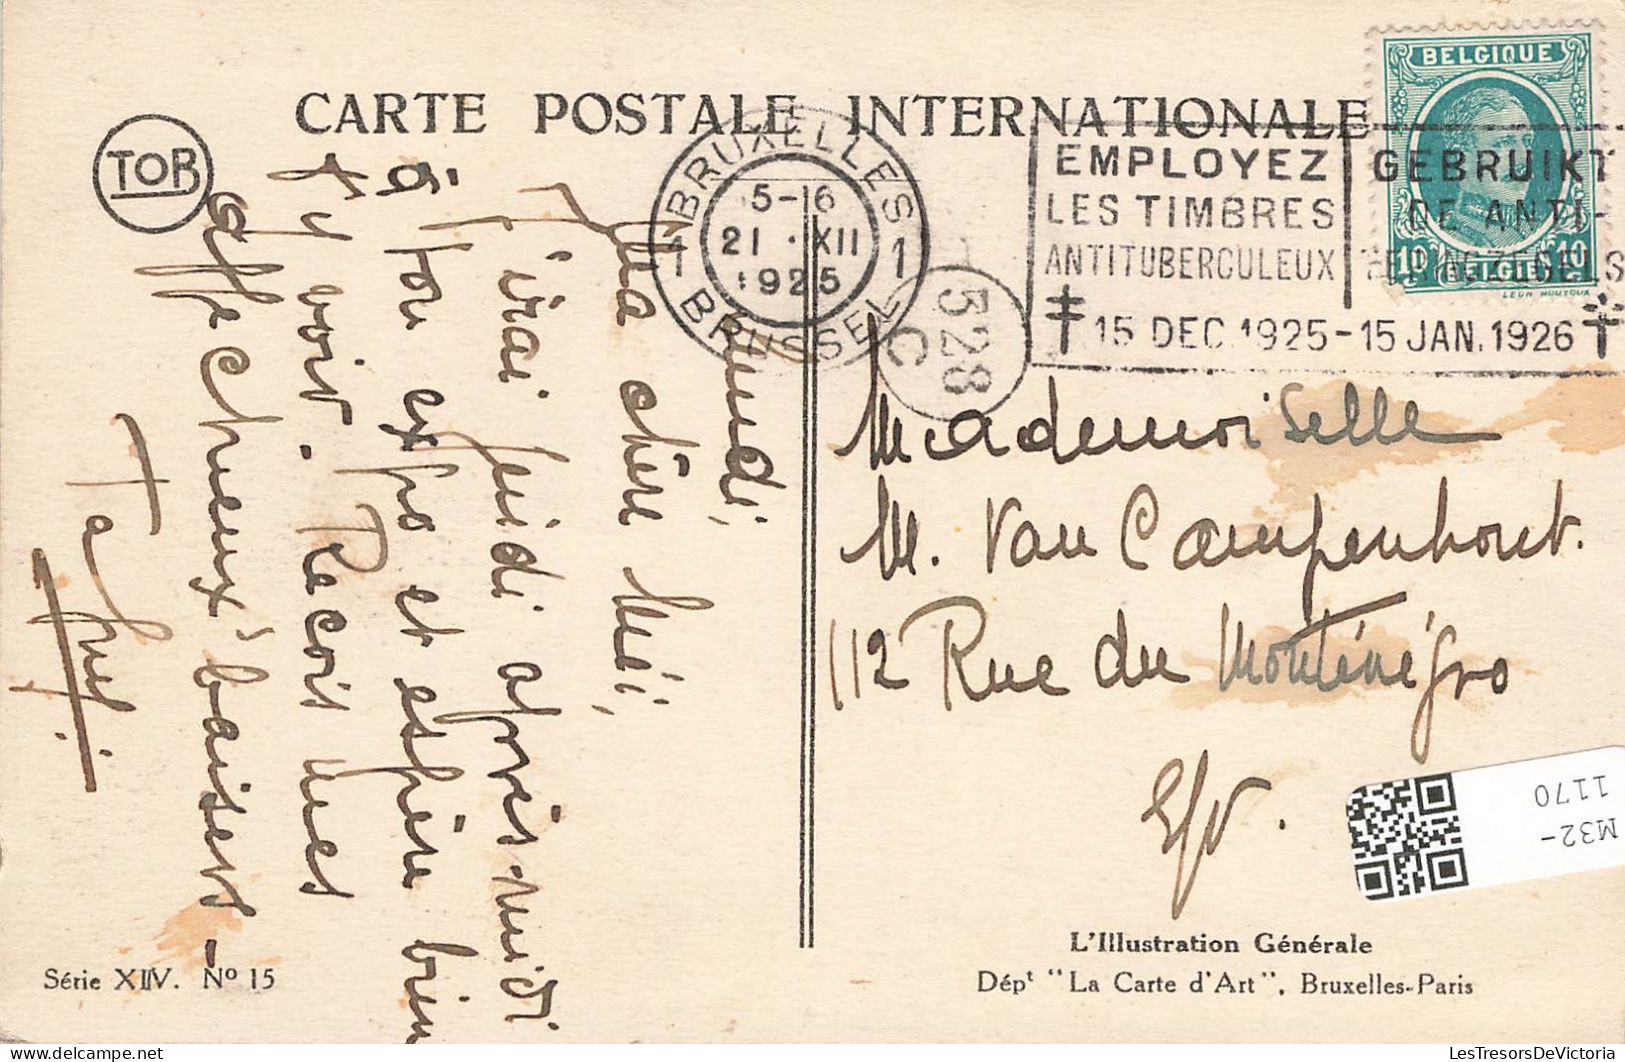 CARTE POSTALE INTERNATIONALE
TOB
BRUXELLES
1 1
5-16
21 · XII
1925
BRUSSEL
528
C
EMPLOYEZ
LES TIMBRES
ANTITUBERCULEUX
GEBRUIKT
DE ANTI-
15 DEC. 1925-15 JAN. 1926
BELGIQUE
10 10
BELGIE
lundi,
Ma chère Méi,
J'irai jeudi après-midi
à ton expo et espère bien
t'y voir. Reçois mes
affectueux baisers -
Ta
Mademoiselle
M. Van Campenhout.
112 Rue du Monténégro
E/V.
M32-
1170
L'Illustration Générale
Dépt "La Carte d'Art", Bruxelles-Paris
Série XIIV. No 15
LesTresorsDeVictoria